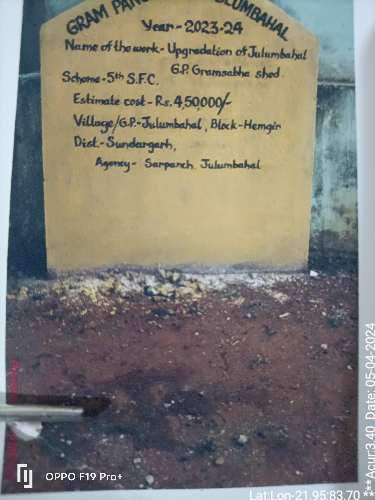 GRAM PANCHAYAT JULUMBAHAL
Year-2023-24
Name of the work- Upgradation of Julumbahal
G.P. Gramsabha shed.
Scheme-5th S.F.C.
Estimate cost-Rs. 4,50,000/-
Village/G.P.-Julumbahal, Block-Hemgir
Dist.-Sundargarh,
Agency- Sarpanch, Julumbahal
OPPO F19 Pro+
Lat:Lon-21.95:83.70
**Acur:3.40 Date: 05-04-2024